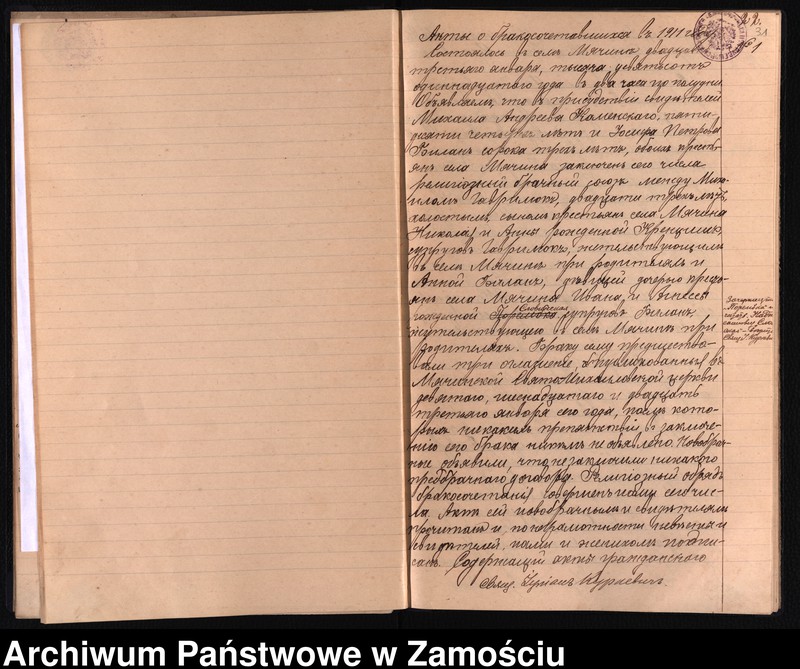 Акты о бракосочетавшихся въ 1911 году
22.
31
№ 1
Состоялось въ селѣ Мячинѣ, двадцать
третьяго января, тысяча девятьсотъ
одиннадцатаго года въ два часа по полудни.
Объявляемъ, что въ присутствіи свидѣтелей
Михаила Андреева Каменскаго, пяти-
десяти четырехъ лѣтъ и Іосифа Петрова
Билана сорока трехъ лѣтъ, обоихъ кресть-
янъ села Мячина заключенъ сего числа
религіозный брачный союзъ между Миха-
иломъ Гаврилюкъ, двадцати трехъ лѣтъ,
холостымъ, сыномъ крестьянъ села Мячина
Николая и Анны рожденной
супруговъ Гаврилюкъ, жительствующимъ
въ селѣ Мячинѣ при родителяхъ и
Анной Биланъ, дѣвицей дочерью кресть-
янъ села Мячина Ивана и Агнесы
рожденной супруговъ Биланъ
жительствующею въ селѣ Мячинѣ при
родителяхъ. Браку сему предшество-
вали три оглашенія, опубликованныя въ
Мячинской Свято-Михайловской церкви
девятаго, шестнадцатаго и двадцать
третьяго января сего года, послѣ кото-
рыхъ никакихъ препятствій къ заключе-
нію сего брака никѣмъ не объявлено. Новобрач-
ные объявили, что не заключили никакого
предбрачнаго договора. Религіозный обрядъ
бракосочетанія совершенъ нами сего чис-
ла. Актъ сей новобрачнымъ и свидѣтелямъ
прочитанъ и, по неграмотности невѣсты и
свидѣтелей, нами и женихомъ подпи-
санъ. Содержащій акты гражданскаго
Свящ.
Archiwum Państwowe w Zamościu